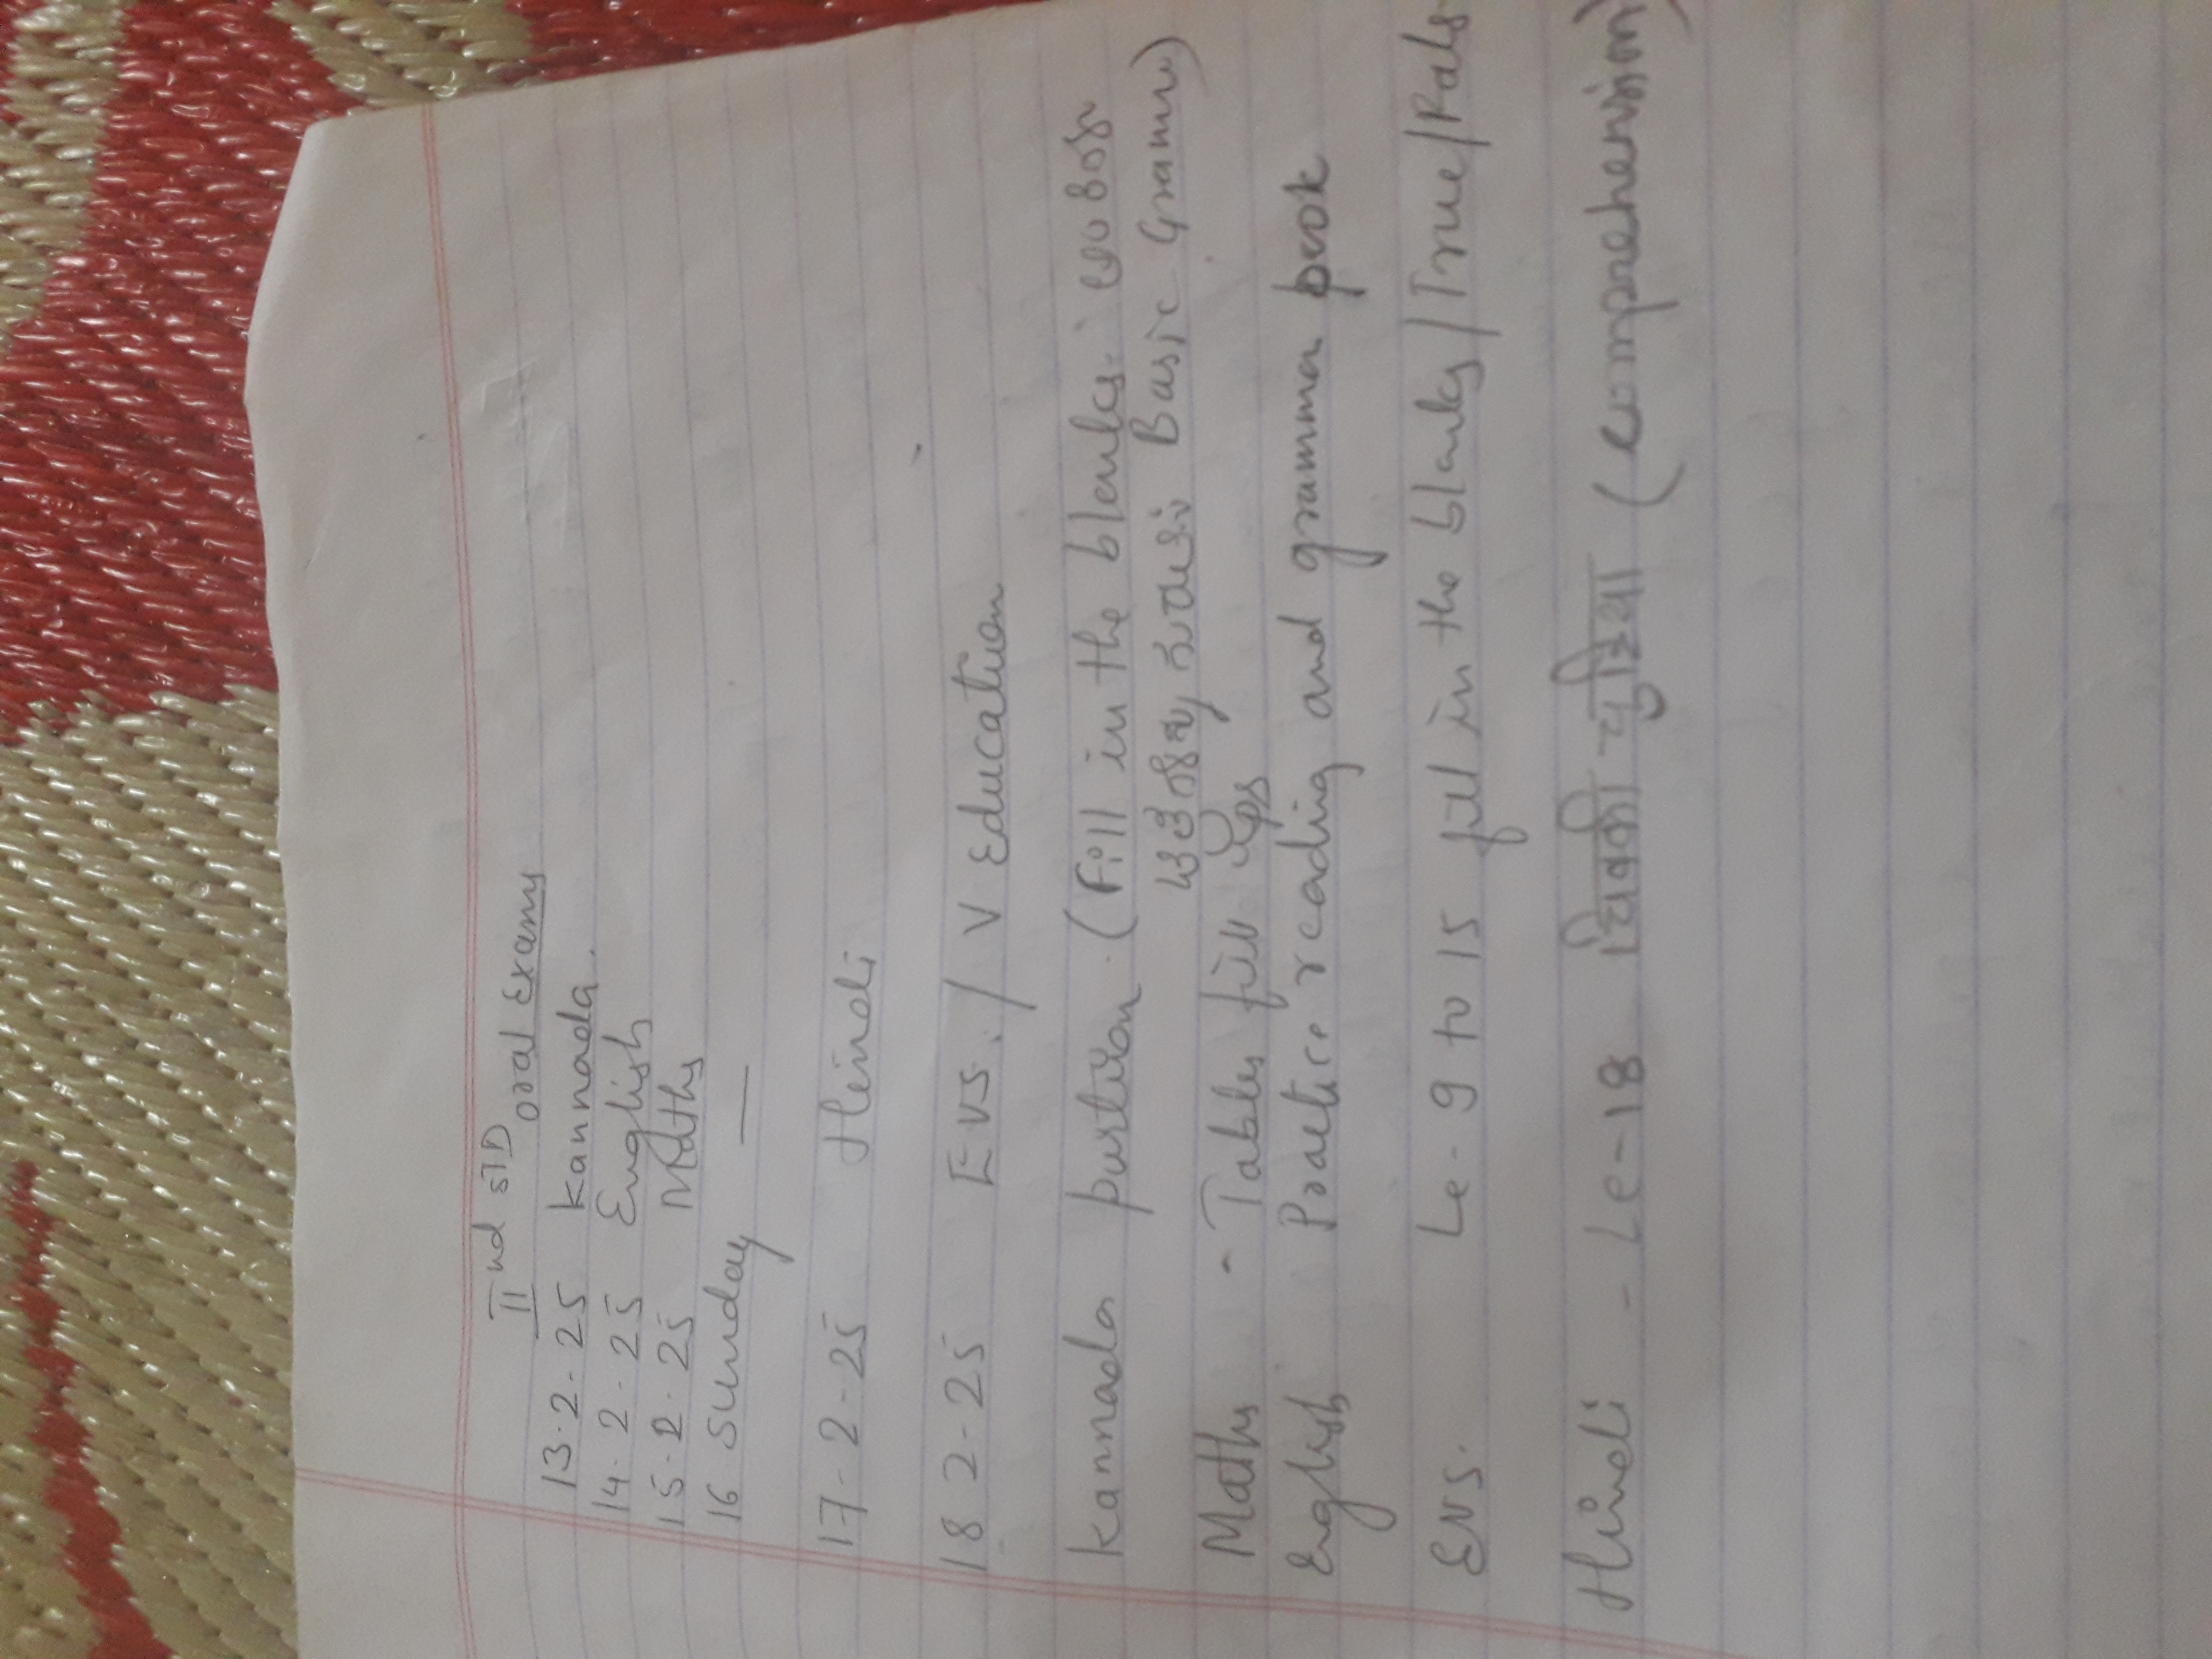 IInd STD
oral Exams
13.2.25 Kannada.
14.2.25 English
15.2.25 Maths
16 Sunday —
17-2-25 Hindi
18 2-25 EVS. / V Education
Kannada portion. (Fill in the blanks.
Basic Gramer)
Maths - Tables fill ups
English Practice reading and grammar book
EVS. Le- 9 to 15 fill in the blanks/True/Fals
Hindi - Le-18 (comprehension)